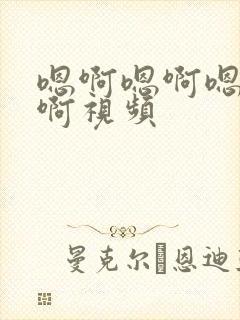 嗯啊嗯啊嗯
啊視頻
曼克尔恩迪